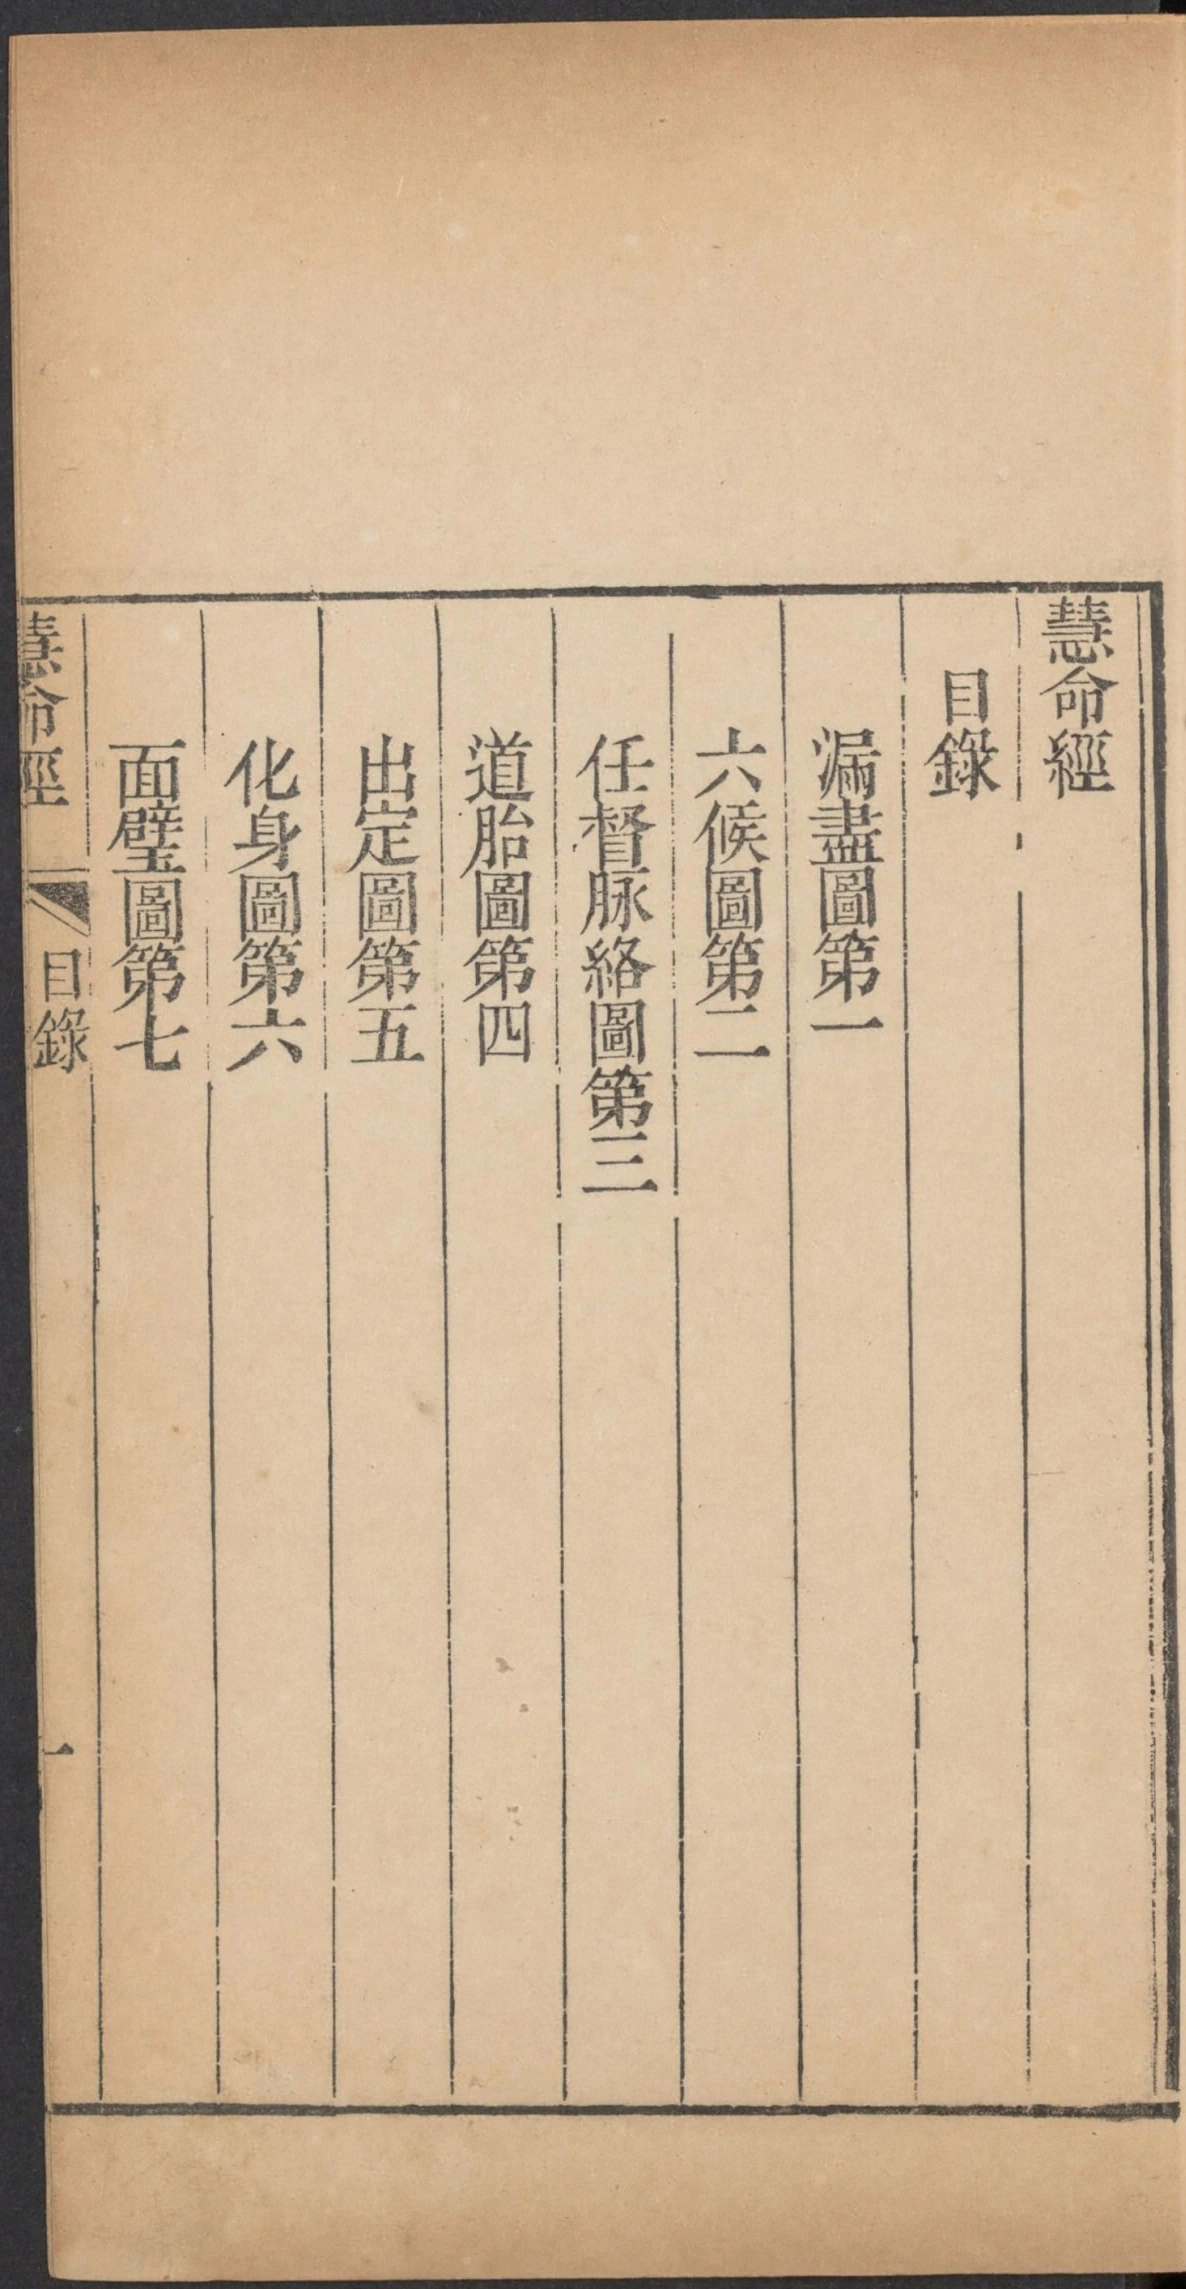 慧命經
目錄
漏盡圖第一
六候圖第二
任督脉絡圖第三
道胎圖第四
出定圖第五
化身圖第六
面壁圖第七
慧命經 目錄 一